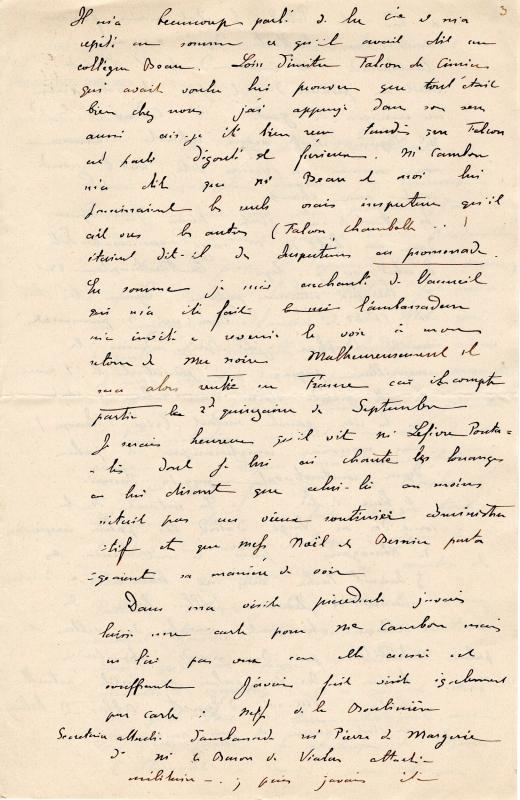 3
Il m'a beaucoup parlé de la Cie et m'a
répété en somme ce qu'il avait dit au
collègue Beau. Loin d'imiter Talcon de
qui avait voulu lui prouver que tout était
bien chez nous j'ai appuyé dans son sens
aussi ai-je été bien reçu tandis que Talcon
est parti dégouté et furieux. Mr Cambon
m'a dit que Mr Beau et moi lui
paraissaient les seuls vrais inspecteurs qu'il
ait vus les autres (Talcon Chambelle ...)
étaient dit-il des Inspecteurs en promenade.
En somme je suis enchanté de l'accueil
qui m'a été fait l'ambassadeur
m'a invité à revenir le voir à mon
retour de Mer noire Malheureusement il
sera alors rentré en France car il compte
partir la 2e quinzaine de Septembre
Je serais heureux qu'il vit Mr Lefèvre Ponta-
-lis dont je lui ai chanté les louanges
en lui disant que celui-là au moins
n'était pas un vieux routinier administra
-tif et que Mess Noël et Bernier parta
-geaient sa manière de voir
Dans ma visite précédente j'avais
laissé une carte pour Me Cambon mais
ne l'ai pas vue car elle aussi est
souffrante J'avais fait visite également
par carte : Mess de la Boulinière
Secrétaire attaché d'ambassade Mr Pierre de Margerie
do Mr le Baron de Vialar attaché
militaire - ; puis j'avais été